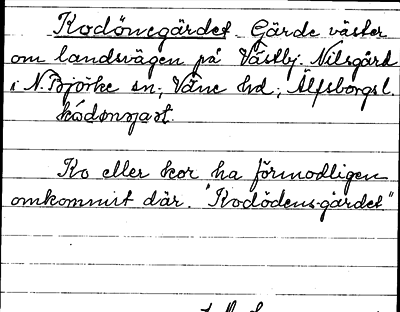 Kodönegärdet. Gärde väster
om landsvägen på Västbj. Nilsgård
i N. Björke sn, Väne hd, Älfsborgs l.
Ko eller kor ha förmodligen
omkommit där. "Kodödens-gärdet"